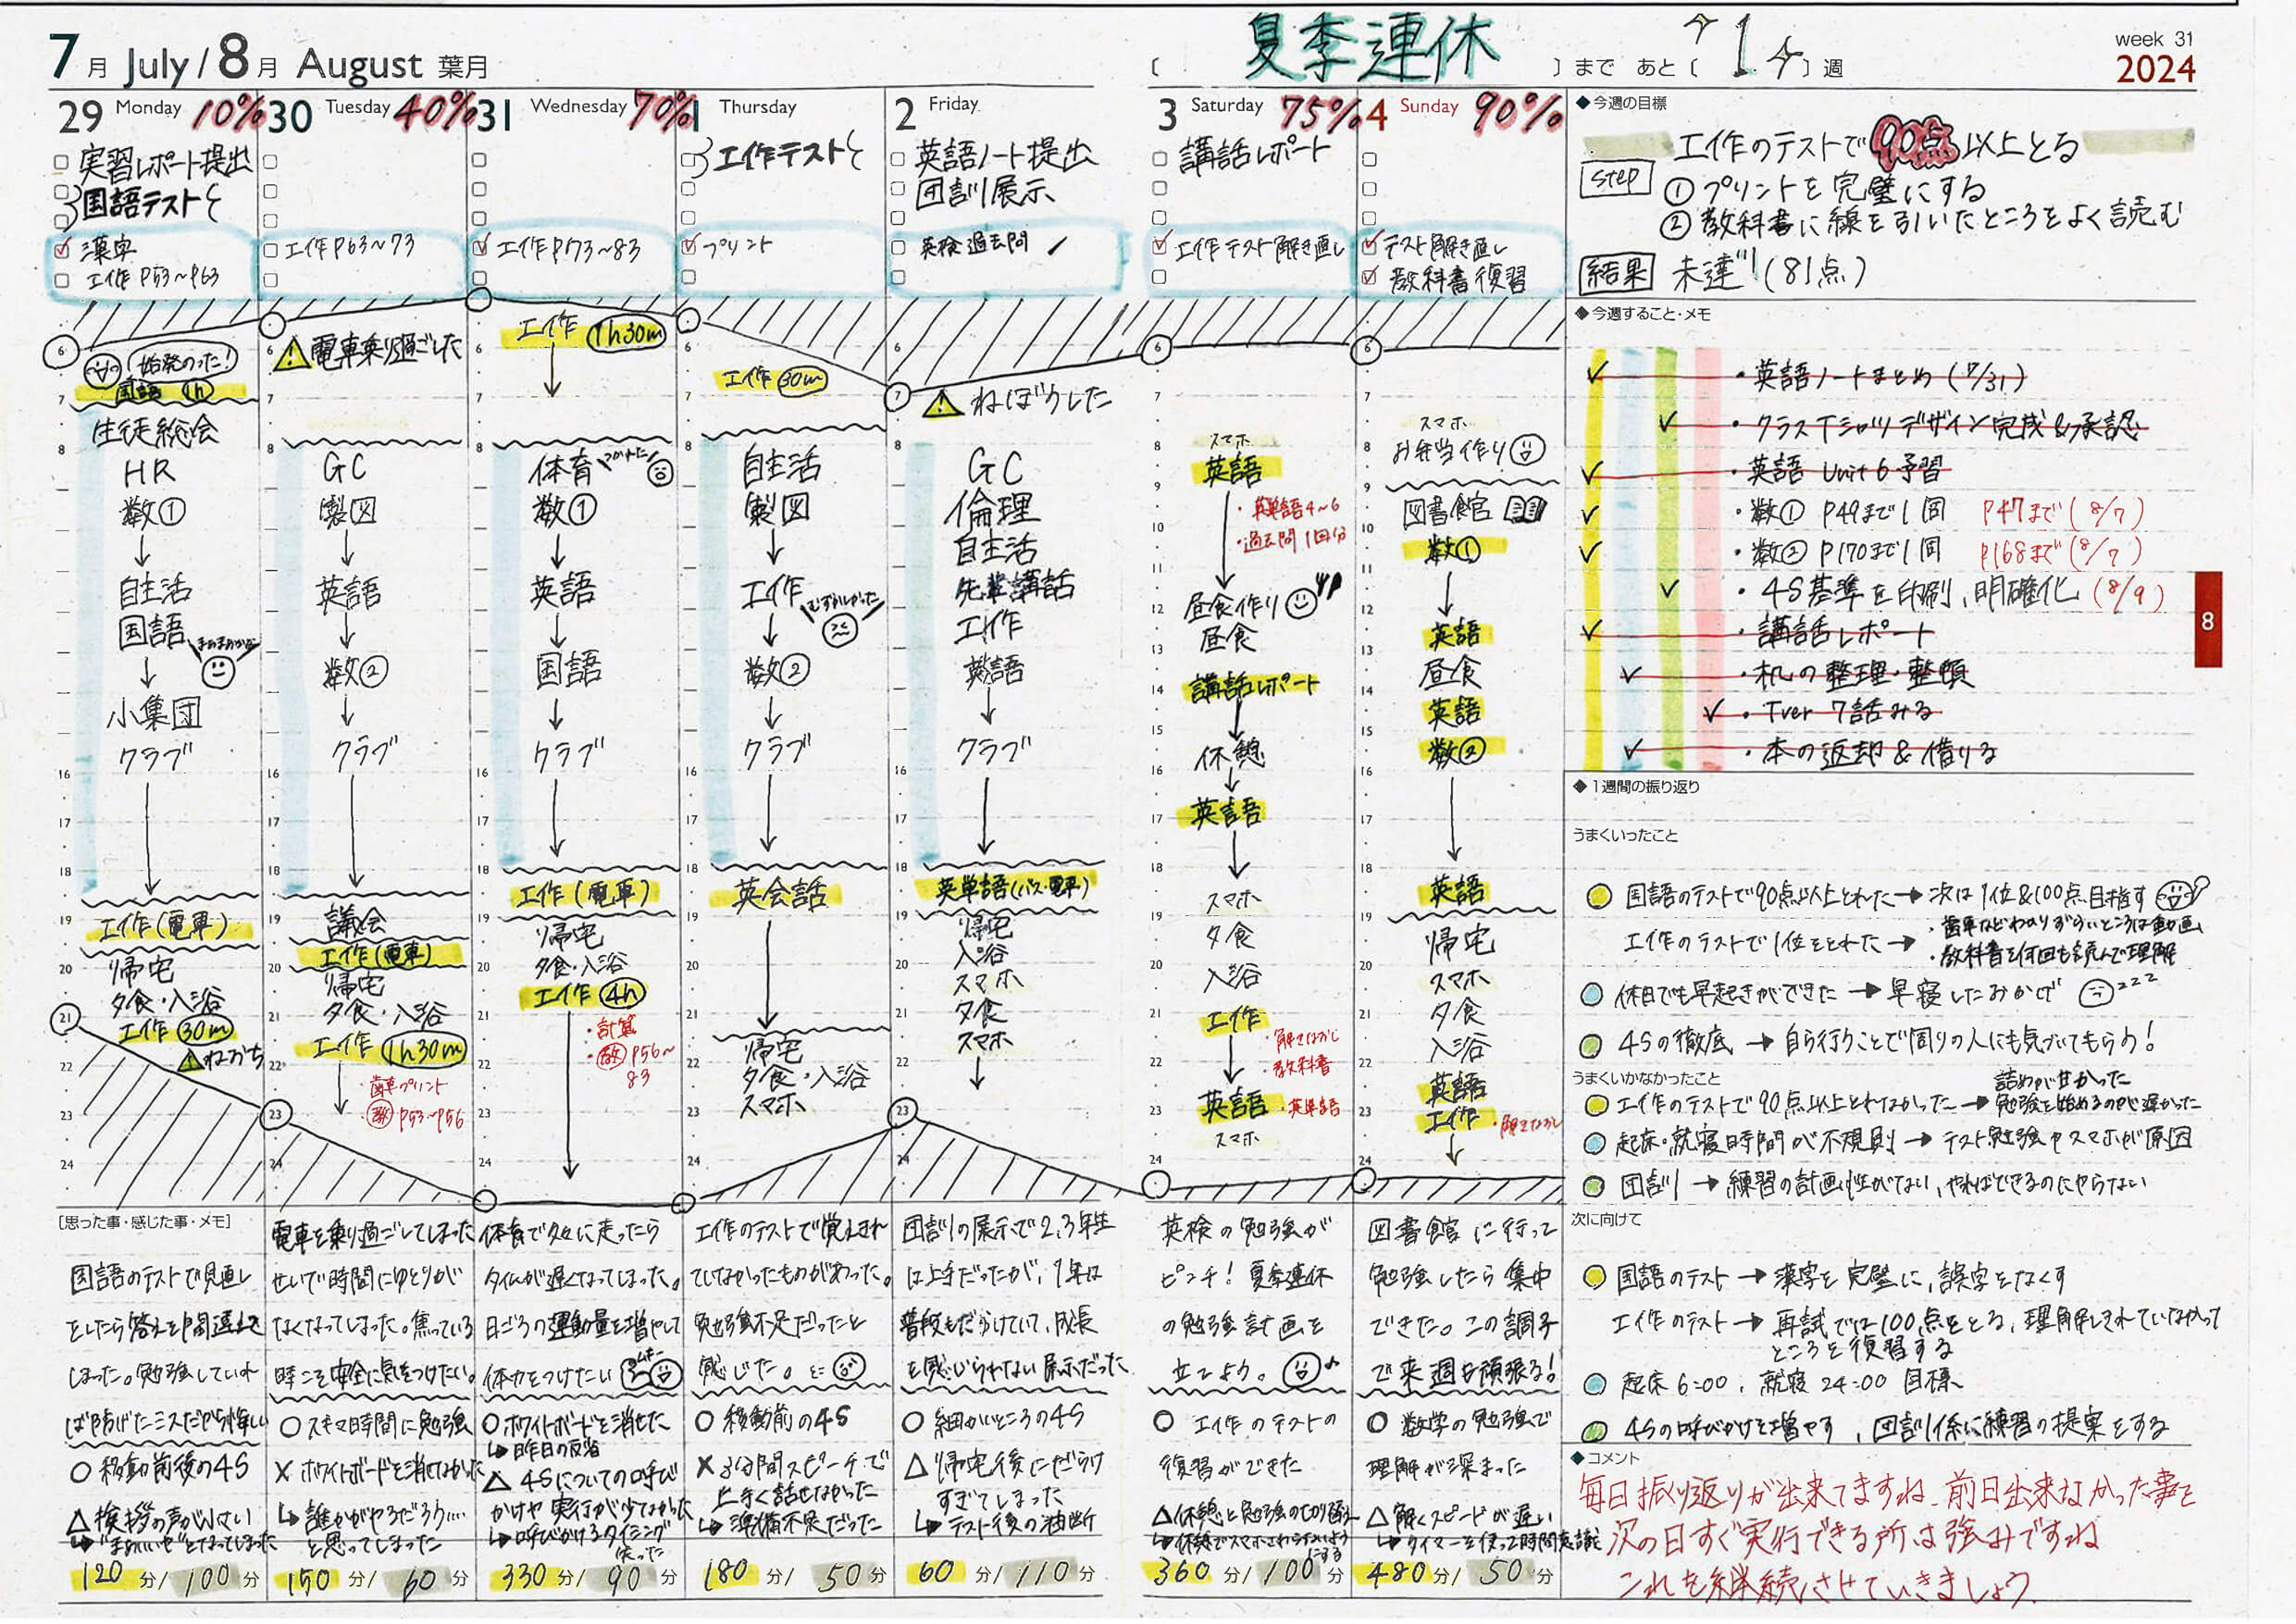 7月 July / 8月 August 葉月
〔 夏季連休 〕まで あと〔 1 〕週
week 31
2024
29 Monday 10%
実習レポート提出
国語テスト
漢字
工作 P53~P63
30 Tuesday 40%
工作 P63~73
31 Wednesday 70%
工作 P73~83
1 Thursday
工作テスト
プリント
2 Friday
英語ノート提出
団訓展示
英検過去問
3 Saturday 75%
講話レポート
工作テスト解き直し
4 Sunday 90%
テスト解き直し
教科書復習
6
始発のった!
国語 1h
7
生徒総会
8
HR
数①
↓
自主活
国語
↓
小集団
クラブ
16
17
18
19
工作(電車)
20
帰宅
夕食・入浴
21
工作 30m
ねおち
22
23
24
6
電車乗り過ごした
7
8
GC
製図
↓
英語
↓
数②
↓
クラブ
16
17
18
19
議会
工作(電車)
20
帰宅
夕食・入浴
21
工作 1h30m
22
歯車プリント
教 P53~P56
23
24
6
工作 1h30m
7
8
体育
つかれた
数①
↓
英語
↓
国語
↓
クラブ
16
17
18
工作(電車)
19
帰宅
20
夕食・入浴
工作 4h
21
・計算
・教 P56~
83
22
23
24
6
工作 30m
7
8
自主活
製図
↓
工作
むずかしかった
↓
数②
↓
クラブ
16
17
18
英会話
19
20
21
帰宅
22
夕食・入浴
スマホ
23
24
6
7
ねぼうした
8
GC
倫理
自主活
先輩講話
工作
英語
↓
クラブ
16
17
18
英単語(バス・電車)
19
帰宅
入浴
20
スマホ
夕食
21
スマホ
22
23
24
6
7
スマホ
8
英語
9
・英単語4~6
10
・過去問1回分
11
12
昼食作り
昼食
13
14
講話レポート
15
休憩
16
英語
17
18
スマホ
19
夕食
20
入浴
21
工作
・解きなおし
22
・教科書
23
英語 ・英単語
スマホ
24
6
7
スマホ
8
お弁当作り
9
図書館
10
数①
11
12
英語
13
昼食
14
英語
15
数②
16
17
18
英語
19
帰宅
20
スマホ
21
夕食
入浴
22
英語
23
工作 ・解きなおし
24
[思った事・感じた事・メモ]
国語のテストで見直し
をしたら答えを間違えて
しまった。勉強していれ
ば防げたミスだから悔しい
○ 移動前後の4S
△ 挨拶の声が小さい
↳"まあいいや"となってしまった
120分/100分
電車を乗り過ごしてしまった
せいで時間にゆとりが
なくなってしまった。焦っている
時こそ安全に気をつけたい。
○ スキマ時間に勉強
× ホワイトボードを消せなかった
↳ 誰かがやるだろう…
と思ってしまった
150分/60分
体育で久々に走ったら
タイムが遅くなってしまった。
日ごろの運動量を増やして
体力をつけたい
○ ホワイトボードを消せた
↳ 昨日の反省
△ 4Sについての呼び
かけや実行が少なかった
↳呼びかけるタイミング
失った
330分/90分
工作のテストで覚えきれ
ていなかったものがあった。
勉強不足だったと
感じた。
○ 移動前の4S
× 3分間スピーチで
上手く話せなかった
↳ 準備不足だった
180分/50分
団訓の展示で2,3年生
は上手だったが、1年は
普段もだらけていて、成長
を感じられない展示だった
○ 細かいところの4S
△ 帰宅後にだらけ
すぎてしまった
↳ テスト後の油断
60分/110分
英検の勉強が
ピンチ! 夏季連休
の勉強計画を
立てよう。
○ 工作のテストの
復習ができた
△休憩と勉強の切り替え
↳休憩でスマホさわらないよう
にする
360分/100分
図書館に行って
勉強したら集中
できた。この調子
で来週も頑張る!
○ 数学の勉強で
理解が深まった
△ 解くスピードが遅い
↳タイマーを使って時間意識
480分/50分
◆今週の目標
工作のテストで90点以上とる
step
① プリントを完璧にする
② 教科書に線を引いたところをよく読む
結果 未達!!(81点)
◆今週すること・メモ
・英語ノートまとめ(7/31)
・クラスTシャツデザイン完成&承認
・英語 Unit 6 予習
・数① P49まで1回 P47まで(8/7)
・数② P170まで1回 P168まで(8/7)
・4S基準を印刷、明確化(8/9)
・講話レポート
・机の整理・整頓
・Tver 7話みる
・本の返却&借りる
8
◆1週間の振り返り
うまくいったこと
国語のテストで90点以上とれた→次は1位&100点目指す
工作のテストで1位をとれた→
・歯車などわかりずらいところは動画
・教科書を何回も読んで理解
休日でも早起きができた→早寝したおかげ zzz
4Sの徹底→自ら行うことで周りの人にも気づいてもらう!
うまくいかなかったこと
工作のテストで90点以上とれなかった→
詰めが甘かった
勉強を始めるのが遅かった
起床・就寝時間が不規則→テスト勉強やスマホが原因
団訓→練習の計画性がない、やればできるのにやらない
次に向けて
国語のテスト→漢字を完璧に、誤字をなくす
工作のテスト→再試では100点をとる、理解しきれていなかった
ところを復習する
起床6:00、就寝24:00目標
4Sの呼びかけを増やす、団訓係に練習の提案をする
◆コメント
毎日振り返りが出来てますね。前日出来なかった事を
次の日すぐ実行できる所は強みですね
これを継続させていきましょう。